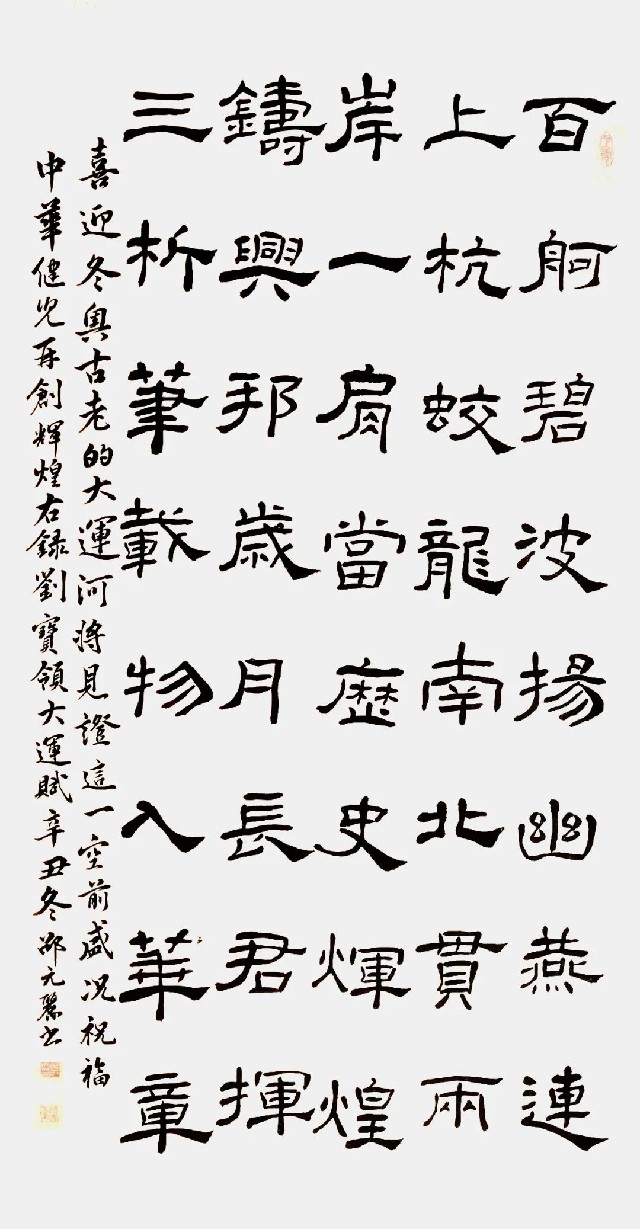 百舸碧波揚幽燕連
上杭蛟龍南北貫兩
岸一肩當歷史輝煌
鑄興邦歲月長君揮
三析筆載物入華章
喜迎冬奥古老的大運河將見證這一空前盛况祝福
中華健兒再創輝煌右録劉寶領大運賦辛丑冬邵元麗书